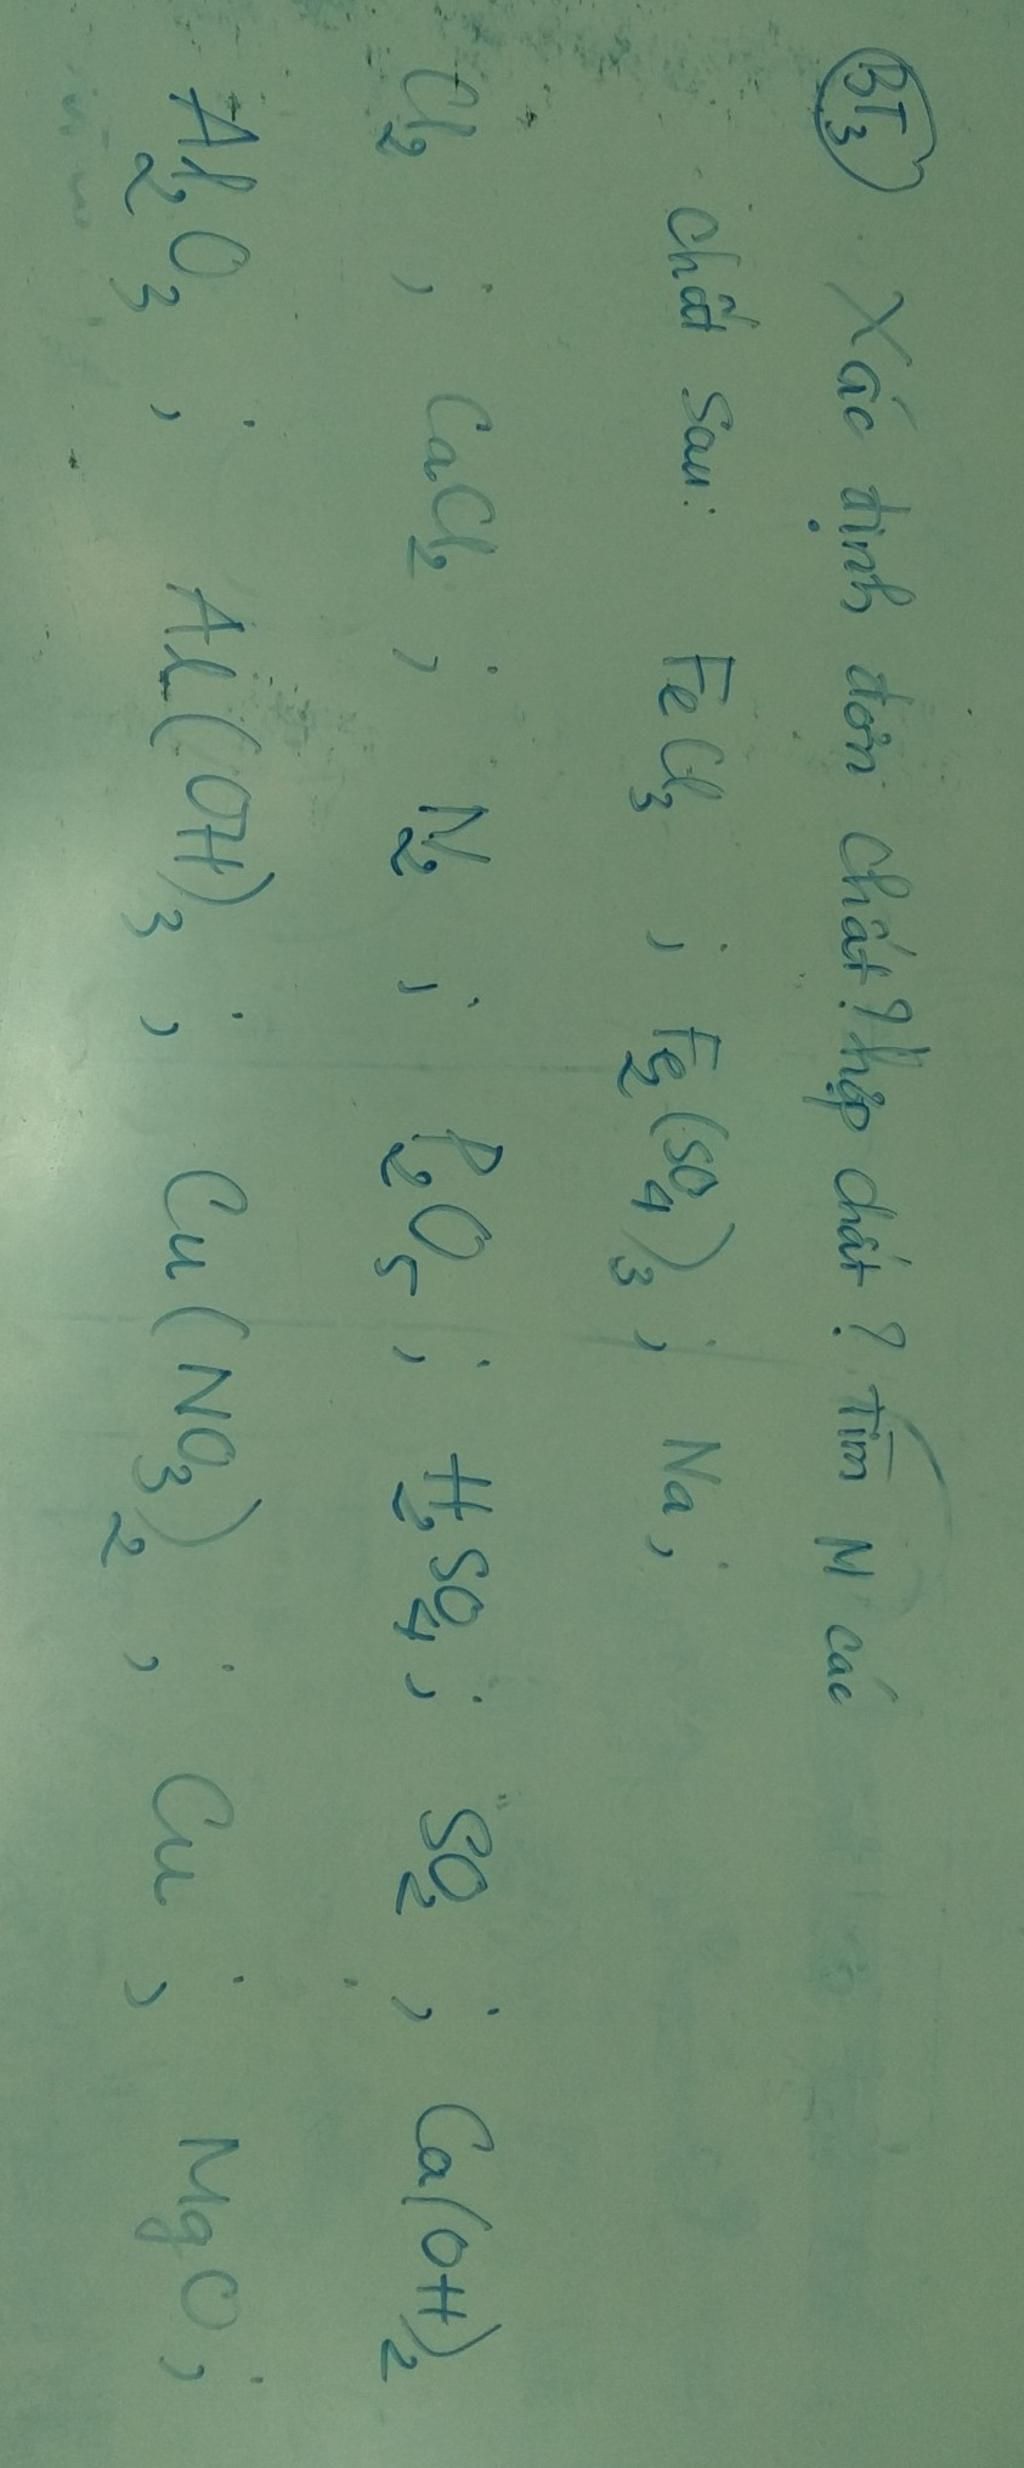 BT3 Xác định đơn chất? hợp chất? Tìm M các
chất sau: FeCl3 ; Fe2(SO4)3 ; Na ;
Cl2 ; CaCl2 ; N2 ; P2O5 ; H2SO4 ; SO2 ; Ca(OH)2
Al2O3 ; Al(OH)3 ; Cu(NO3)2 ; Cu ; MgO ;